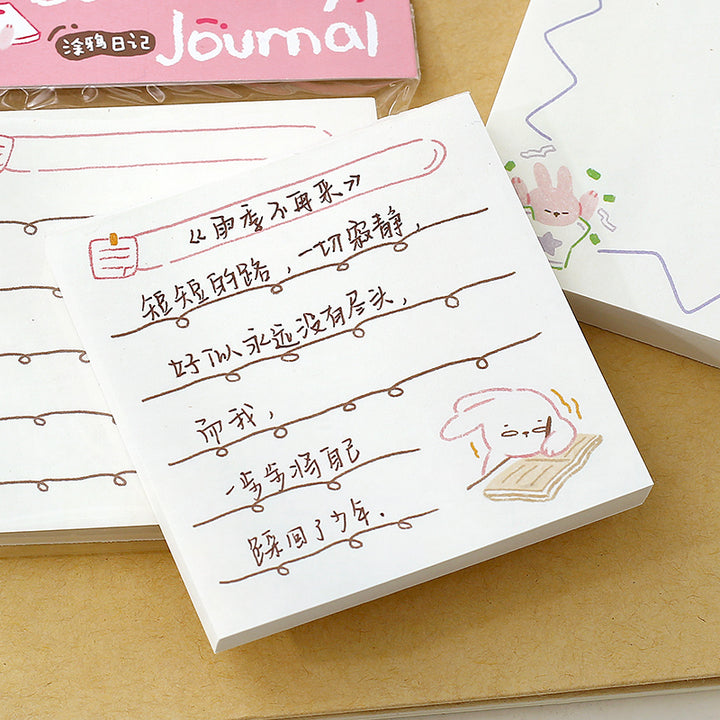 Journal
涂鸦日记
《雨季不再来》
短短的路,一切寂静,
好似永远没有尽头,
而我,
一步步将自己
踩回了少年.